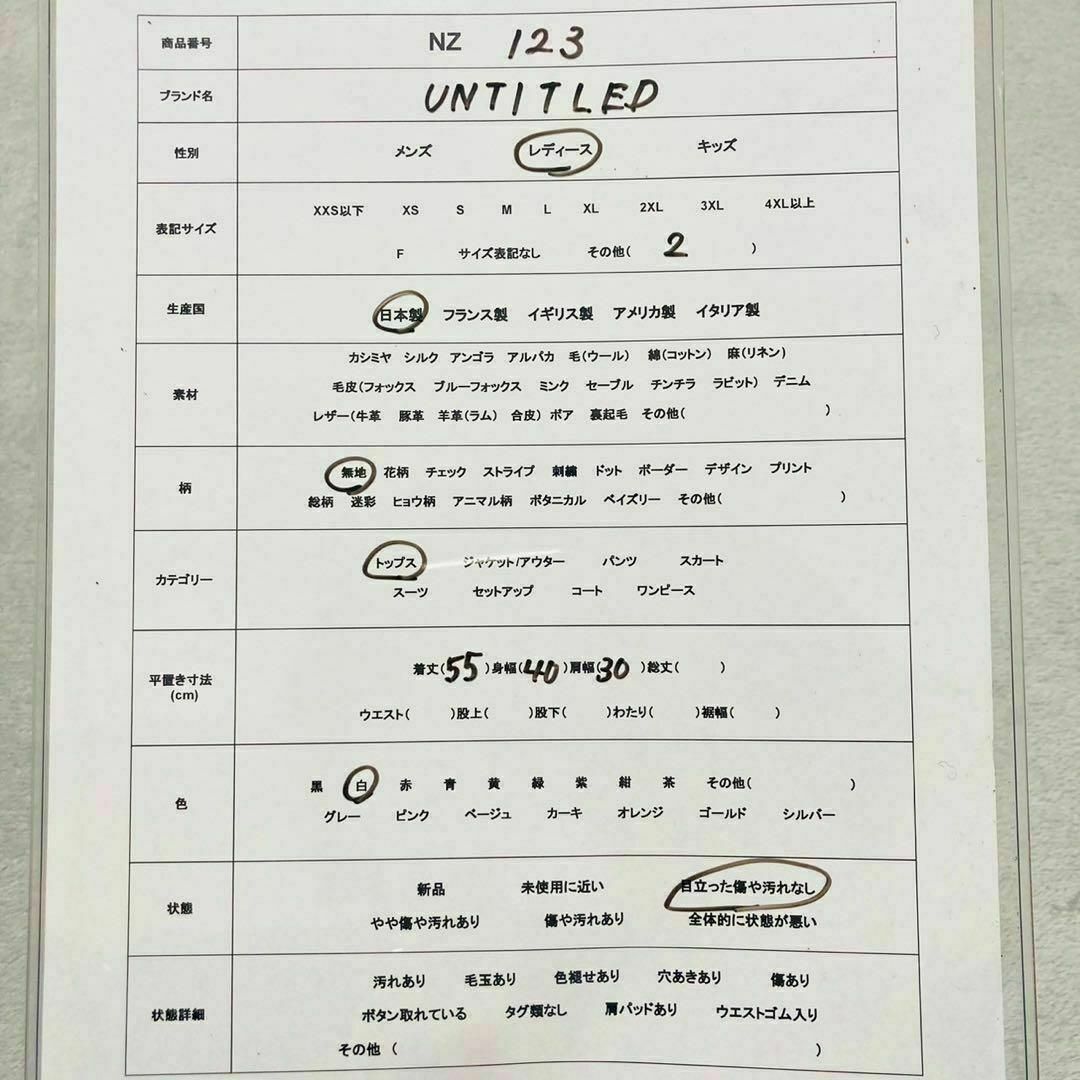 商品番号 NZ 123
ブランド名 UNTITLED
性別 メンズ レディース キッズ
表記サイズ
XXS以下 XS S M L XL 2XL 3XL 4XL以上
F サイズ表記なし その他( 2 )
生産国 日本製 フランス製 イギリス製 アメリカ製 イタリア製
素材
カシミヤ シルク アンゴラ アルパカ 毛(ウール) 綿(コットン) 麻(リネン)
毛皮(フォックス ブルーフォックス ミンク セーブル チンチラ ラビット) デニム
レザー(牛革 豚革 羊革(ラム) 合皮) ボア 裏起毛 その他( )
柄
無地 花柄 チェック ストライプ 刺繍 ドット ボーダー デザイン プリント
総柄 迷彩 ヒョウ柄 アニマル柄 ボタニカル ペイズリー その他( )
カテゴリー
トップス ジャケット/アウター パンツ スカート
スーツ セットアップ コート ワンピース
平置き寸法
(cm)
着丈(55)身幅(40)肩幅(30)総丈( )
ウエスト( )股上( )股下( )わたり( )裾幅( )
色
黒 白 赤 青 黄 緑 紫 紺 茶 その他( )
グレー ピンク ベージュ カーキ オレンジ ゴールド シルバー
状態
新品 未使用に近い 目立った傷や汚れなし
やや傷や汚れあり 傷や汚れあり 全体的に状態が悪い
状態詳細
汚れあり 毛玉あり 色褪せあり 穴あきあり 傷あり
ボタン取れている タグ類なし 肩パッドあり ウエストゴム入り
その他 ( )